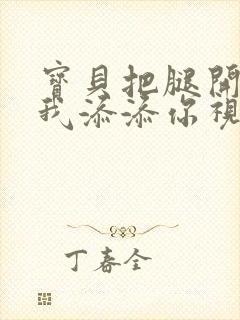 寶貝把腿開
我添添你視
丁春全